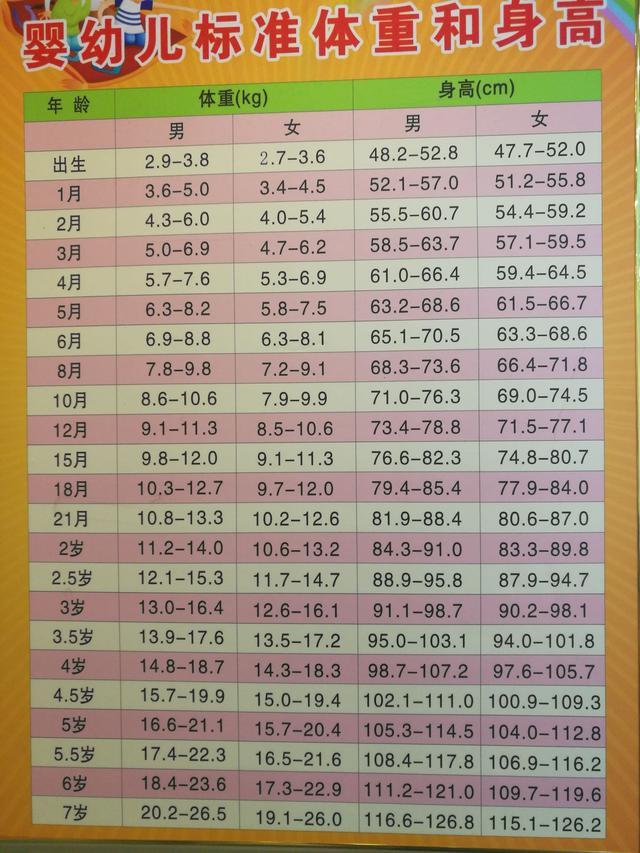 婴幼儿标准体重和身高
年龄 体重(kg) 身高(cm)
男 女 男 女
出生 2.9–3.8 2.7–3.6 48.2–52.8 47.7–52.0
1月 3.6–5.0 3.4–4.5 52.1–57.0 51.2–55.8
2月 4.3–6.0 4.0–5.4 55.5–60.7 54.4–59.2
3月 5.0–6.9 4.7–6.2 58.5–63.7 57.1–59.5
4月 5.7–7.6 5.3–6.9 61.0–66.4 59.4–64.5
5月 6.3–8.2 5.8–7.5 63.2–68.6 61.5–66.7
6月 6.9–8.8 6.3–8.1 65.1–70.5 63.3–68.6
8月 7.8–9.8 7.2–9.1 68.3–73.6 66.4–71.8
10月 8.6–10.6 7.9–9.9 71.0–76.3 69.0–74.5
12月 9.1–11.3 8.5–10.6 73.4–78.8 71.5–77.1
15月 9.8–12.0 9.1–11.3 76.6–82.3 74.8–80.7
18月 10.3–12.7 9.7–12.0 79.4–85.4 77.9–84.0
21月 10.8–13.3 10.2–12.6 81.9–88.4 80.6–87.0
2岁 11.2–14.0 10.6–13.2 84.3–91.0 83.3–89.8
2.5岁 12.1–15.3 11.7–14.7 88.9–95.8 87.9–94.7
3岁 13.0–16.4 12.6–16.1 91.1–98.7 90.2–98.1
3.5岁 13.9–17.6 13.5–17.2 95.0–103.1 94.0–101.8
4岁 14.8–18.7 14.3–18.3 98.7–107.2 97.6–105.7
4.5岁 15.7–19.9 15.0–19.4 102.1–111.0 100.9–109.3
5岁 16.6–21.1 15.7–20.4 105.3–114.5 104.0–112.8
5.5岁 17.4–22.3 16.5–21.6 108.4–117.8 106.9–116.2
6岁 18.4–23.6 17.3–22.9 111.2–121.0 109.7–119.6
7岁 20.2–26.5 19.1–26.0 116.6–126.8 115.1–126.2